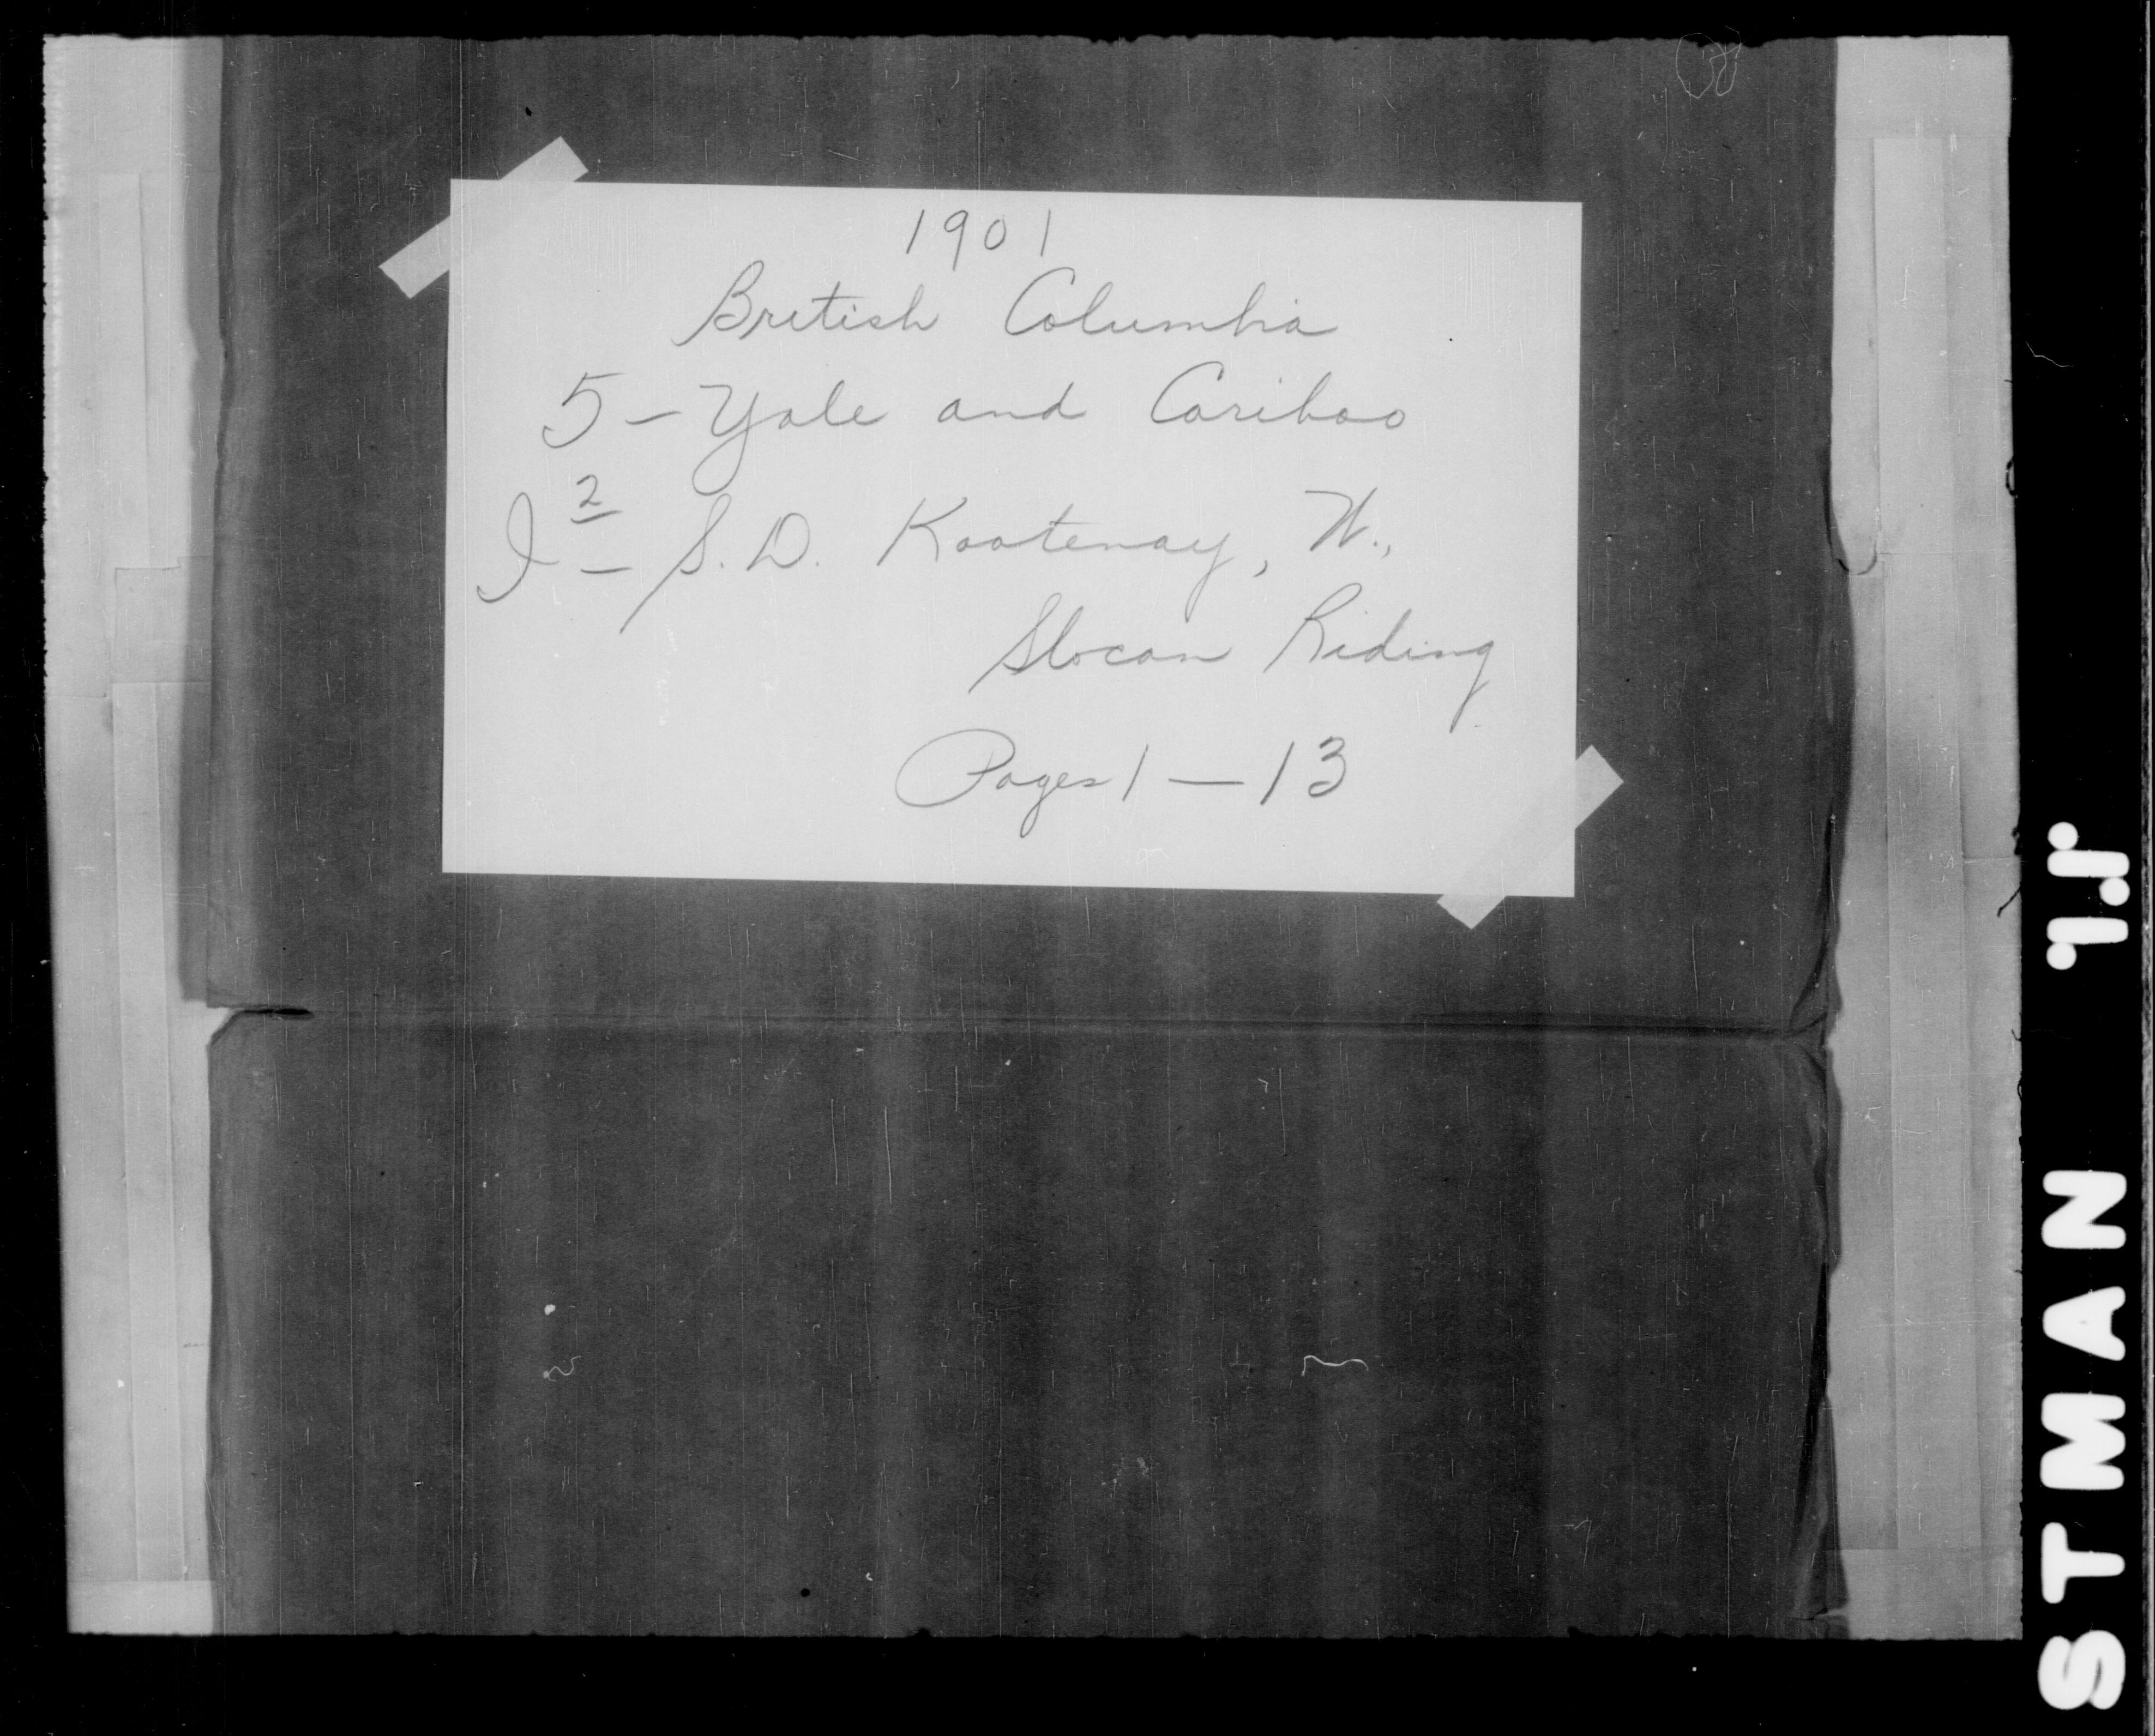 1901
British Columbia
5 - Yale and Cariboo
I 2 - S. D. Kootenay, W.,
Slocan Riding
Pages 1 — 13
STMAN